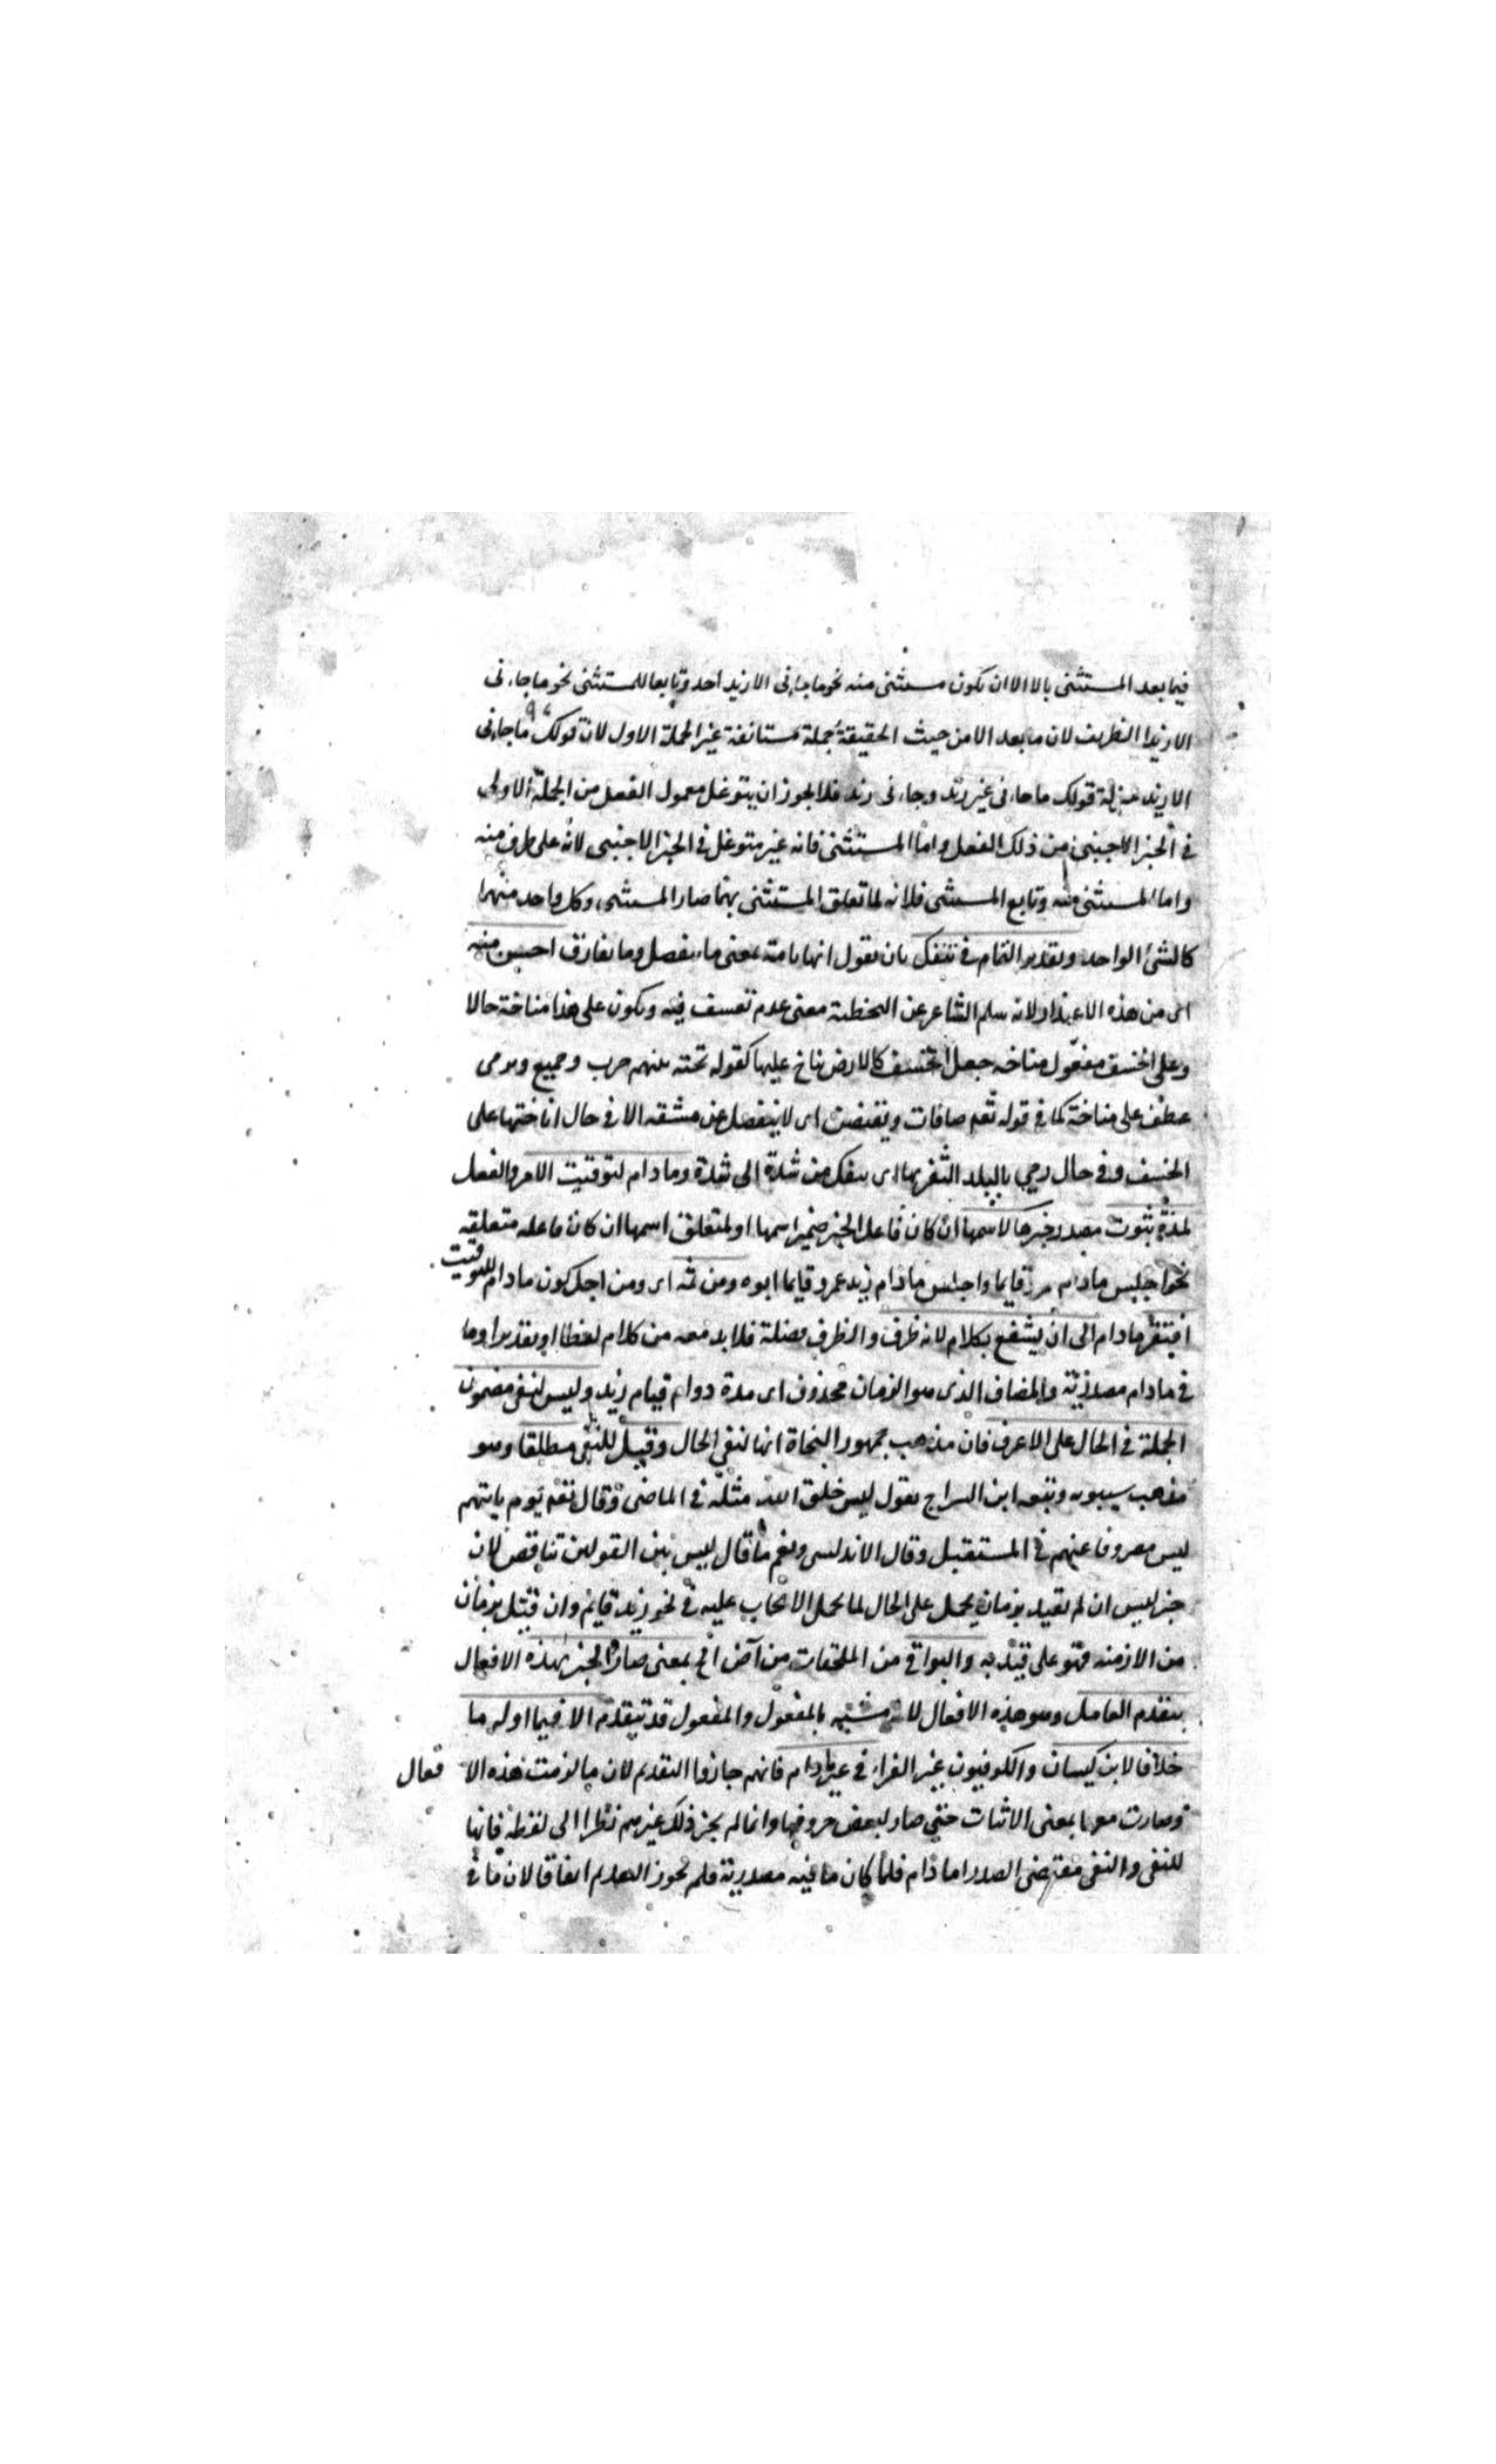 فيما بعد المستثنى بالا الا ان يكون مستثنى منه نحو ما جاءنى الا زيد احد وتابعا للمستثنى نحو ما جاءنى
الا زيدا الظريف لان ما بعد الا من حيث الحقيقة جملة مستانفة غير الجملة الاول لان قولك ما جاءنى
الا زيد بمنزلة قولك ما جاءنى غير زيد وجاءنى زيد فلا يجوز ان يتوغل معمول الفعل من الجملة الاولى
فى الحيز الاجنبى من ذلك الفعل واما المستثنى فانه غير متوغل فى الحيز الاجنبى لانه على طرف منه
واما المستثنى منه وتابع المستثنى فلانه لما تعلق المستثنى بهما صار المستثنى وكل واحد منهما
كالشئ الواحد وتقدير التمام فى تنفك بان يقول انها تامة بمعنى ما ينفصل وما يفارق احسن منه
اى من هذه الاعتذار لانه سلم الشاعر عن التخطئة معنى عدم تعسف فيه ويكون على هذا مناخة حالا
وعلى الخسف مفعول مناخه جعل الخسف كالارض يناخ عليها كقوله تحية بينهم ضرب وجميع ونرمى
عطف على مناخة كما فى قوله تعم صافات ويقبضن اى لا ينفصل عن مشقة الا فى حال اناختها على
الخسف وفى حال رمى بالبلد القفر بها اى ينفك من شدة الى شدة وما دام لتوقيت الامر والفعل
لمدة ثبوت مصدر خبرها لاسمها ان كان فاعل الخبر ضمير اسمها او لمتعلق اسمها ان كان فاعله متعلقه
نحو اجلس مادام زيد قايما واجلس مادام زيد عمرو قايما ابوه ومن ثمه اى ومن اجل كون مادام للتوقيت
افتقر مادام الى ان يشفع بكلام لانه ظرف والظرف فضلة فلا بد معه من كلام لفظا او تقديرا وما
فى مادام مصدرية والمضاف الذى هو الزمان محذوف اى مدة دوام قيام زيد وليس لنفى مضمون
الجملة فى الحال على الاعرف فان مذهب جمهور النحاة انها لنفى الحال وقيل للنفى مطلقا وهو
مذهب سيبويه وتبعه ابن السراج يقول ليس خلق الله مثله فى الماضى وقال تعم يوم ياتيهم
ليس مصروفا عنهم فى المستقبل وقال الاندلسى ونعم ما قال ليس بين القولين تناقض لان
خبر ليس ان لم يقيد بزمان يحمل على الحال لما يحمل الايجاب عليه فى نحو زيد قايم وان قيد بزمان
من الازمنه فهو على قيد به والبواقى من الملحقات من آض الخ بمعنى صار الخبر بهذه الافعال
يتقدم العامل وهو هذه الافعال لانه مشبه بالمفعول والمفعول قد يتقدم الا فيما اوله ما
خلافا لابن كيسان والكوفيون غير الفراء فى غير مادام فانهم جازوا التقديم لان ما لزمت هذه الا فعال
وصارت معها بمعنى الاثبات حتى صار لبعض حروفها وانما لم يجز ذلك غيرهم نظرا الى لفظة فانها
للنفى والنفى مقتضى الصدر اما دام فلما كان ما فيه مصدرية فلم يجوز التقديم اتفاقا لان ما فى